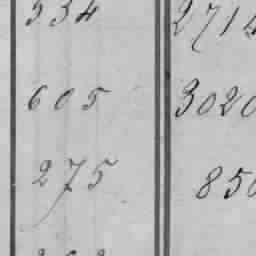 334 2714
605 3020
275 850